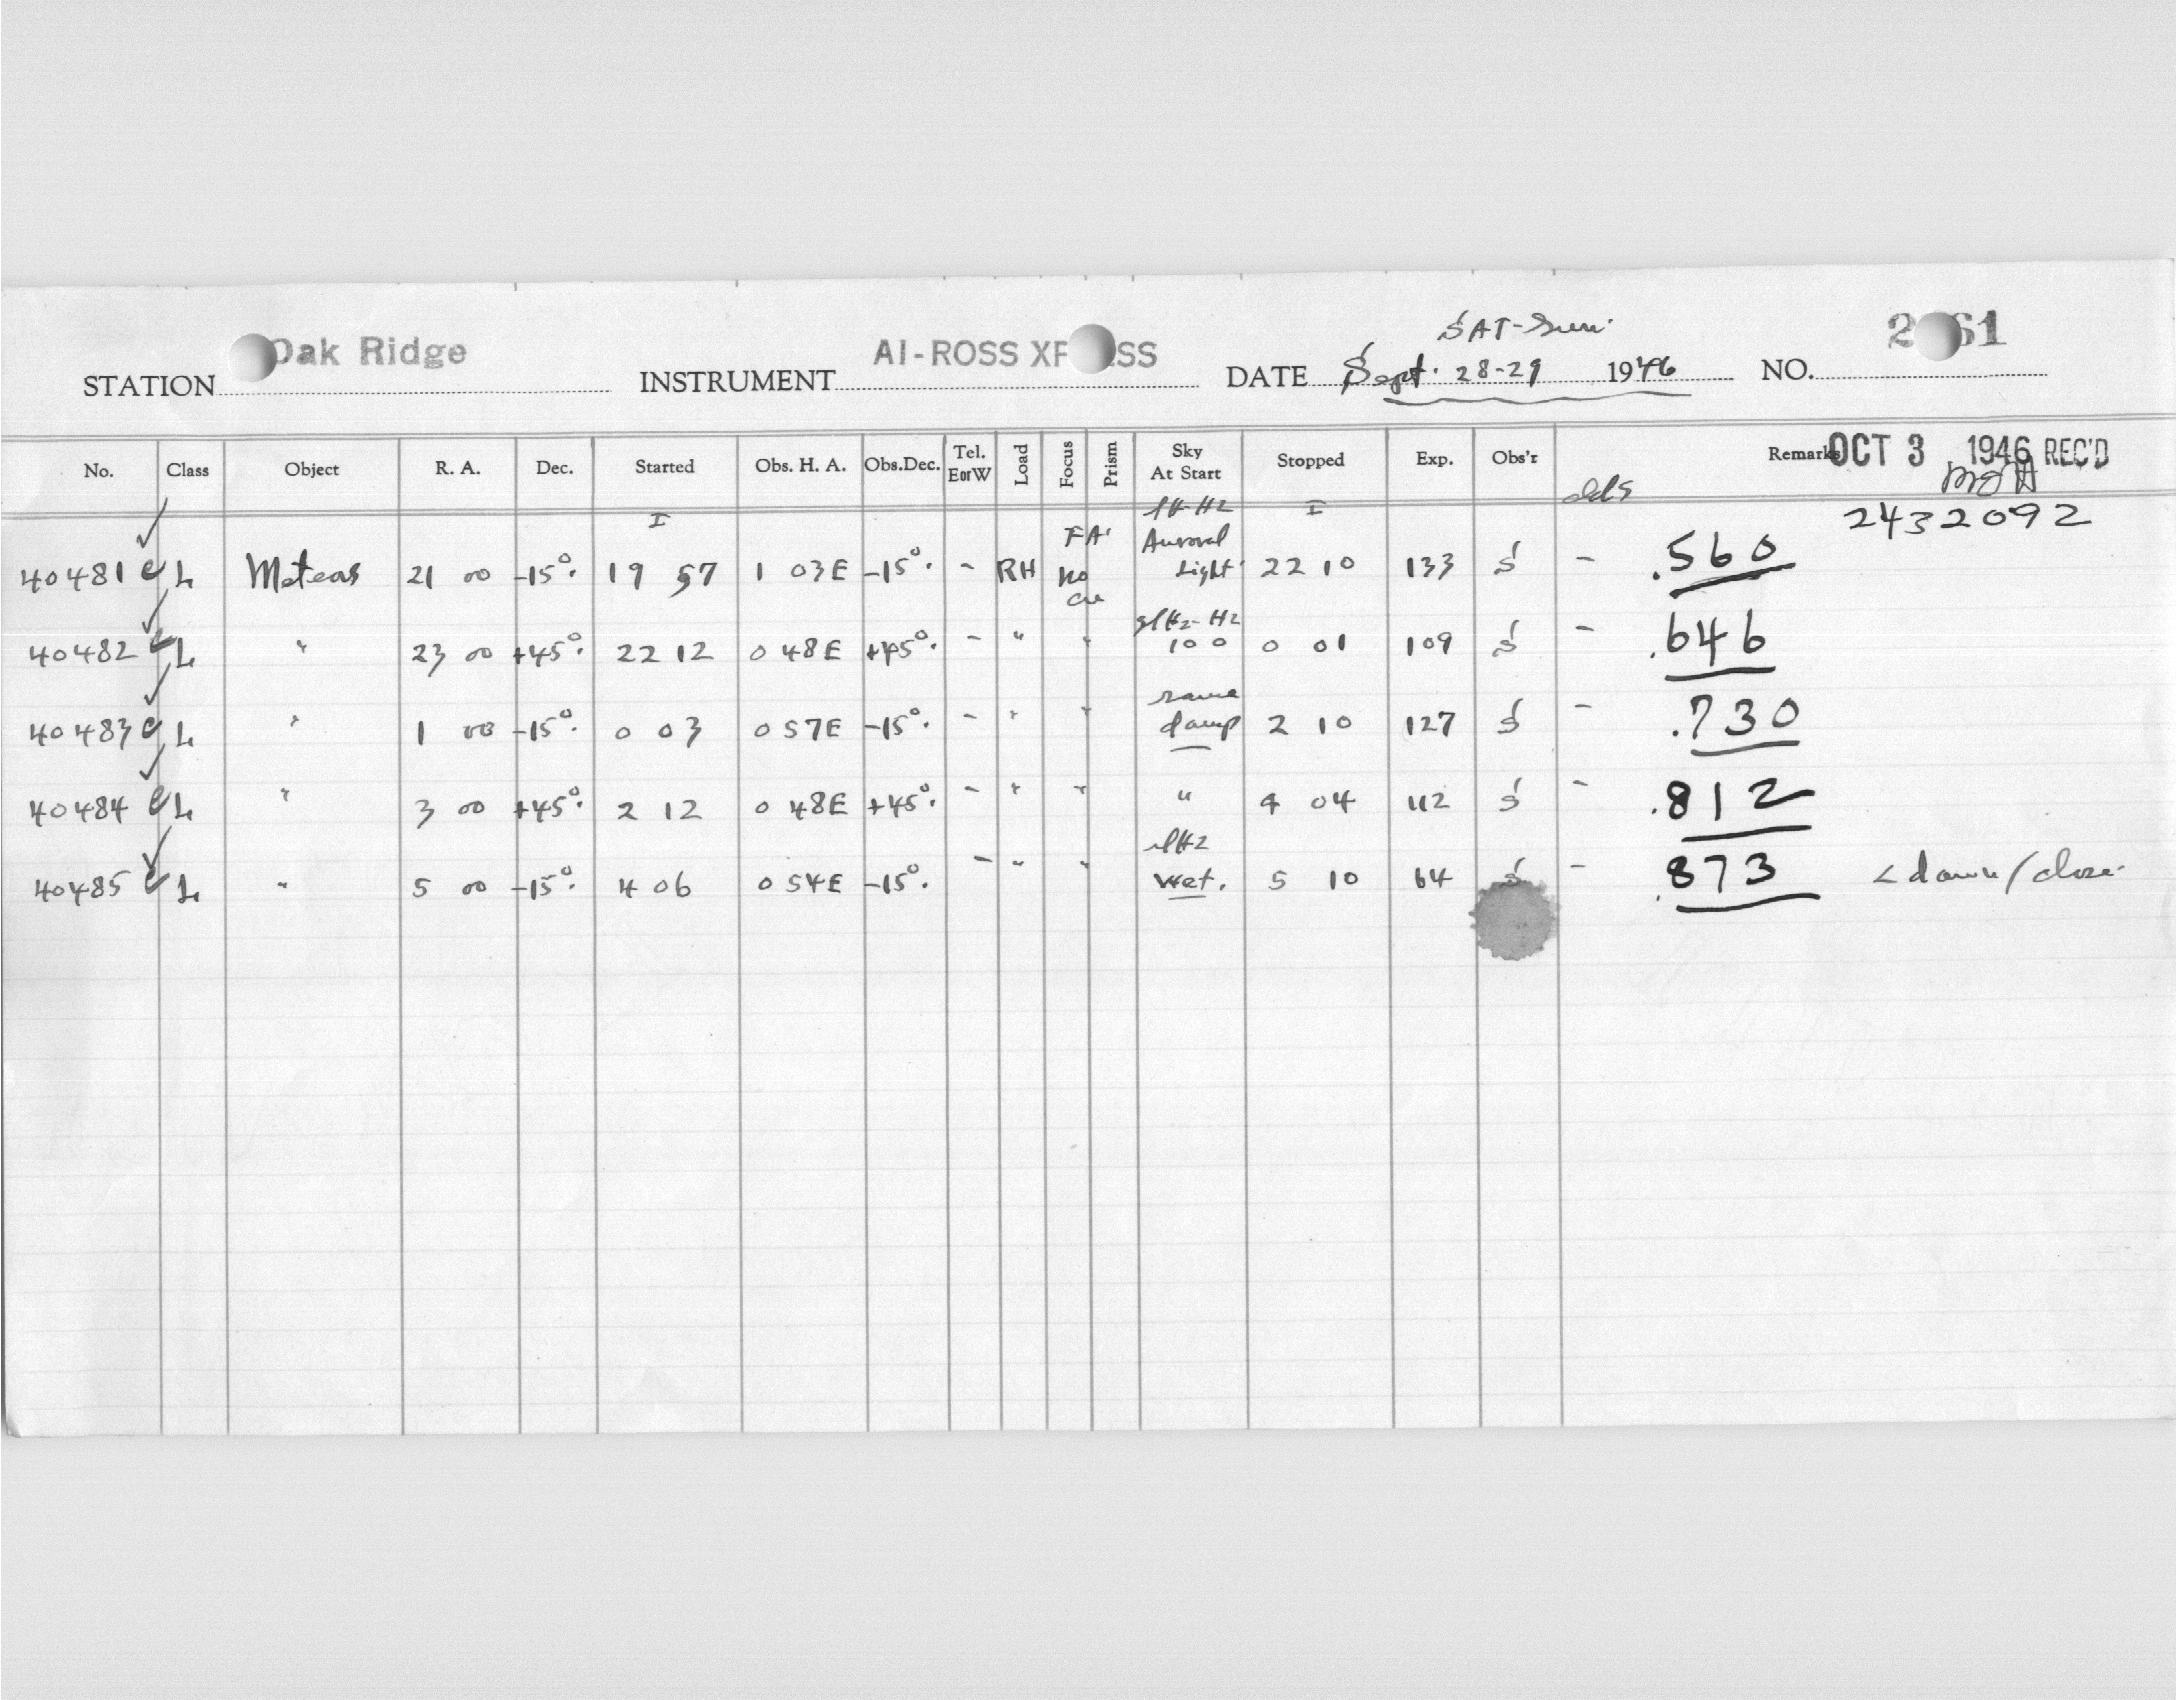 SAT-Sun.
STATION Oak Ridge INSTRUMENT AI-ROSS XP SS DATE Sept. 28-29 1946 NO. 2 61
No. Class Object R. A. Dec. Started Obs. H. A. Obs.Dec. Tel. EorW Load Focus Prism Sky At Start Stopped Exp. Obs'r Remarks OCT 3 1946 REC'D
2432092
40481 L Meteors 21 00 -15°. 19 57 1 03E -15°. - RH FA. no Auroral Light 22 10 133 S - .560
40482 L " 23 00 +45°. 22 12 0 48E +45°. - " " slHz-Hz 100 0 01 109 S - .646
40483 L " 1 00 -15°. 0 03 0 57E -15°. - " " same damp 2 10 127 S - .730
40484 L " 3 00 +45°. 2 12 0 48E +45°. - " " " 4 04 112 S - .812
40485 L " 5 00 -15°. 4 06 0 54E -15°. - " " slHz wet. 5 10 64 S - .873 < dawn/close.